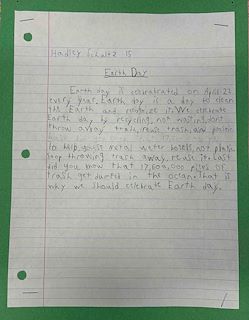 Hadley Schultz 15
Earth Day
Earth day is celebrated on April 22
every year. Earth day is a day to clean
the Earth and recognize it. We celebrate
Earth day by recycling, not wasting, dont
throw away trash, reuse trash, and
to help, use metal water bottels, not plastic
stop throwing trash away, reuse it. Last
did you know that 17,600,000 piles of
trash get dumped in the ocean. that is
why we should celebrate Earth day.